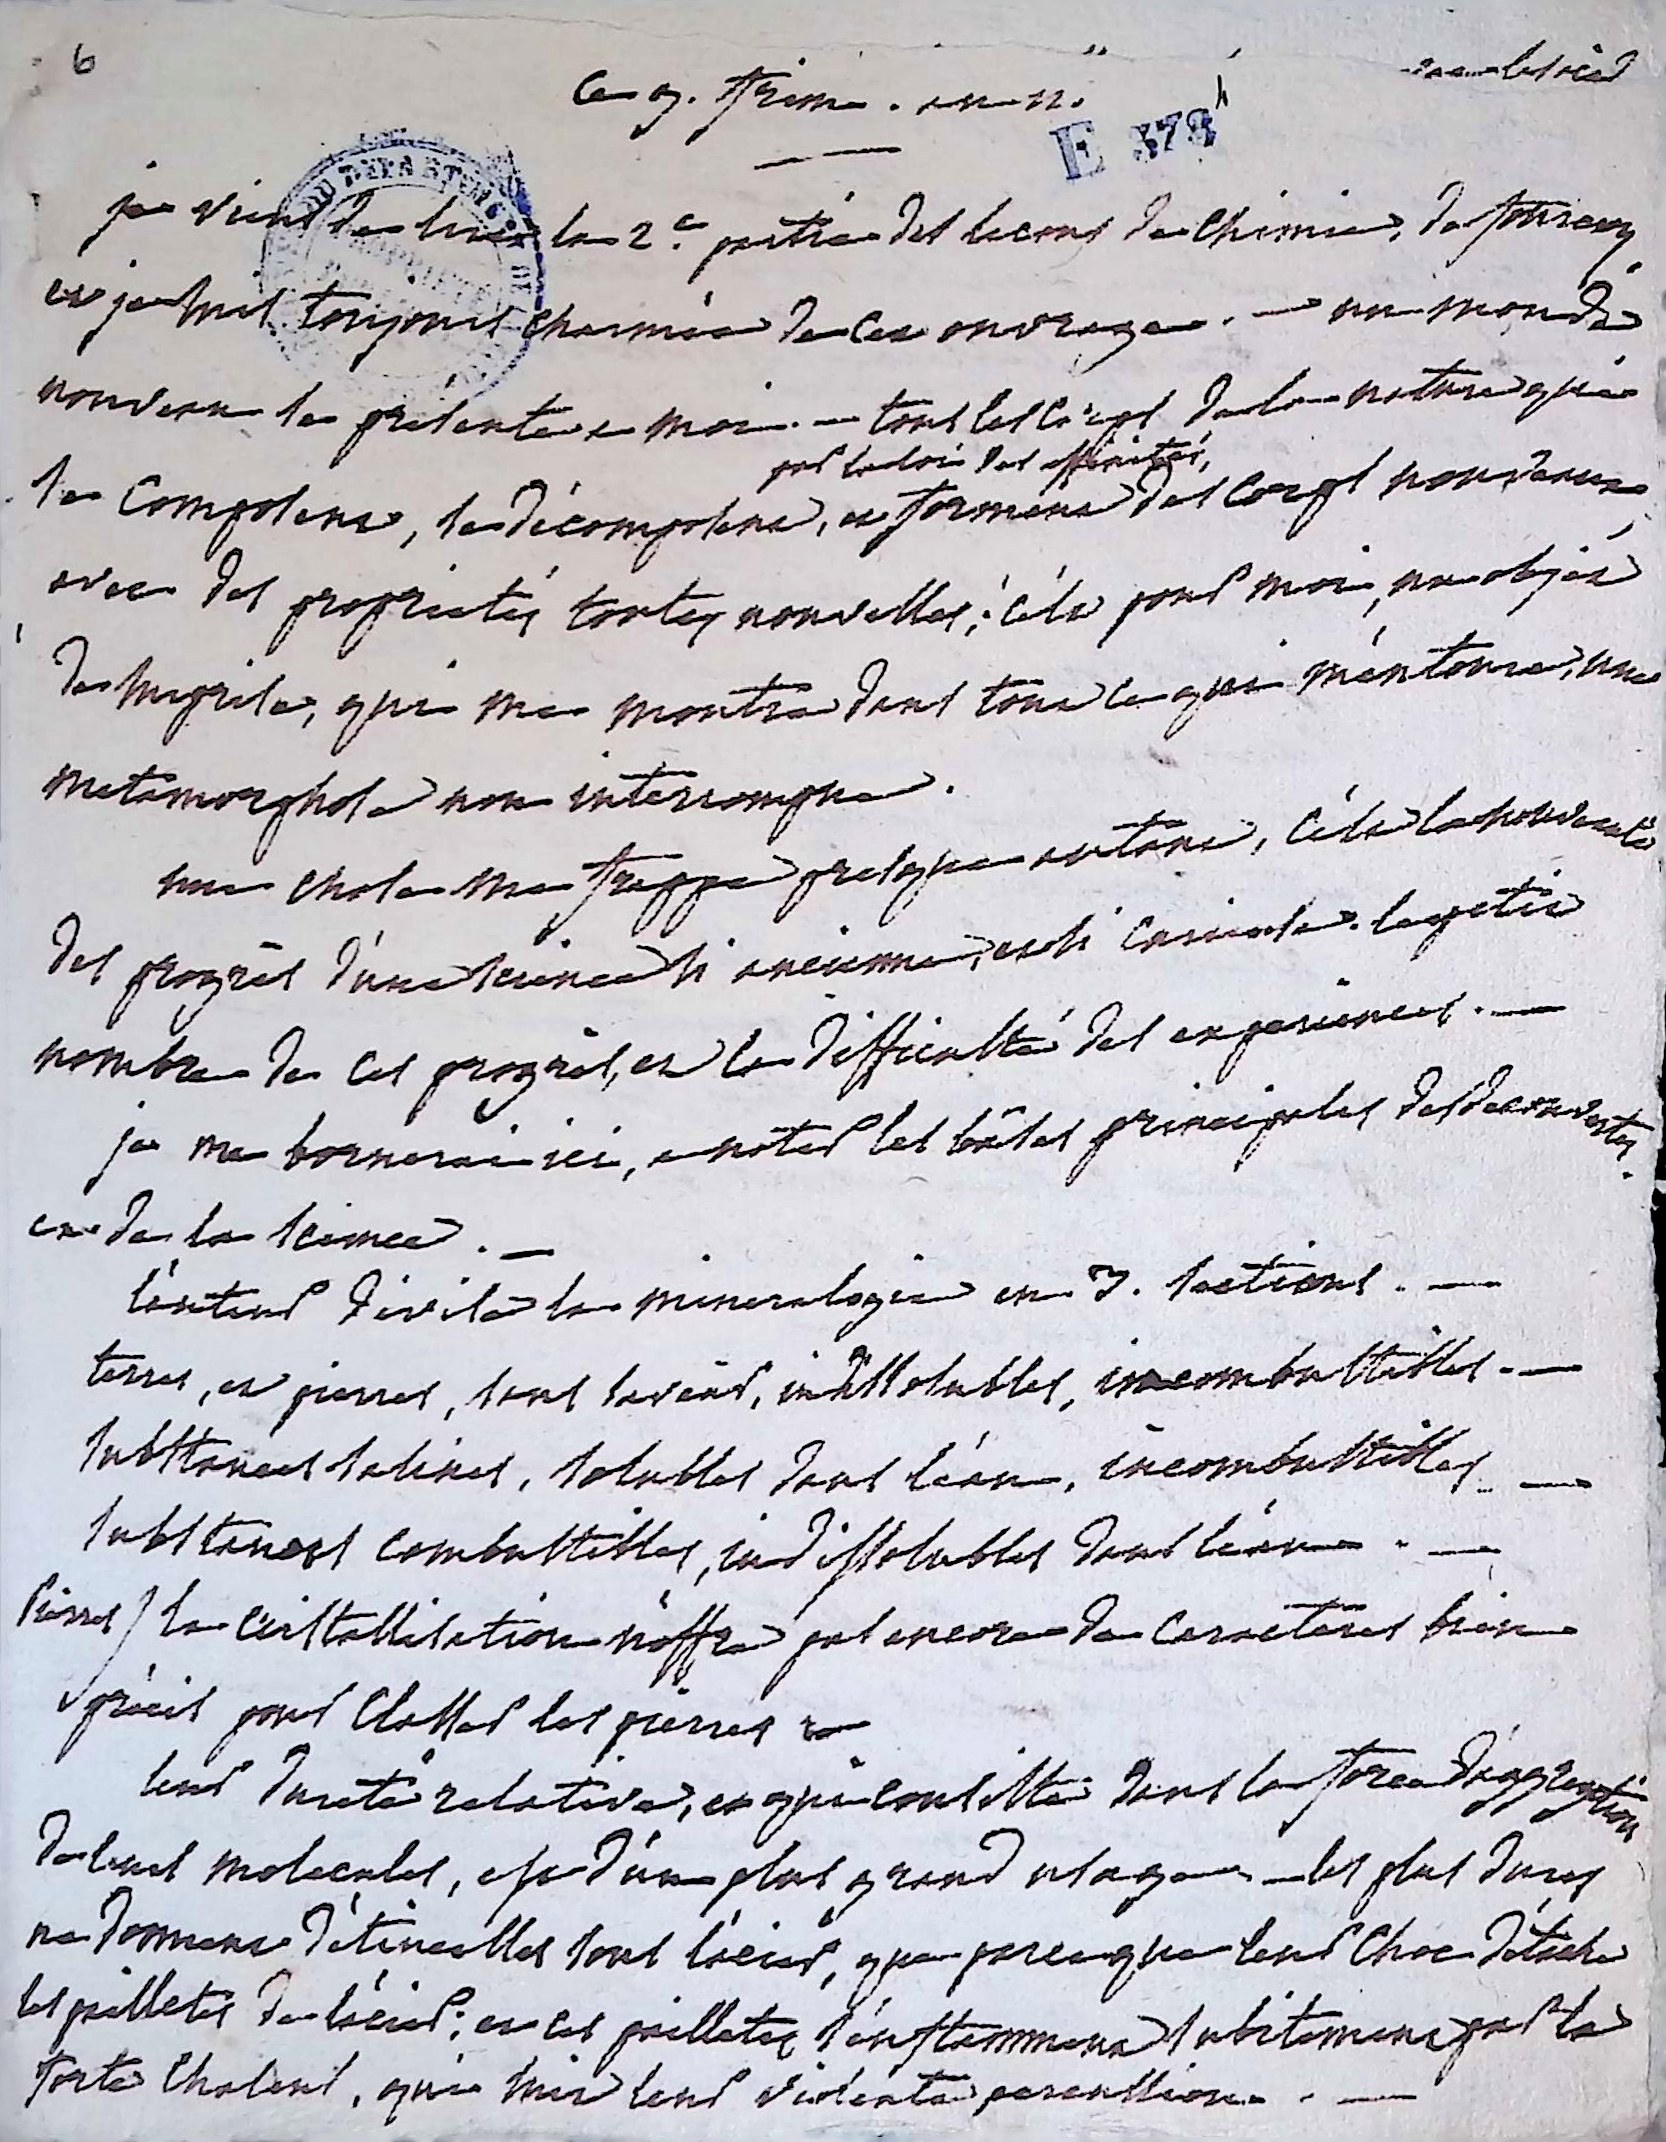 6
ce 9. frim. an n.
E 378
je viens de lire la 2e. partie des lecons de chimie, de fourcroy
et je suis toujours charmée de cet ouvrage. — un monde
nouveau se présente a moi. — tous les corps de la nature qui
par la loi des affinités,
se composent, se décomposent, et forment des corps nouveaux
avec des proprietés toutes nouvelles; c'est pour moi, un objet
de surprise, qui me montre dans tout ce qui m'entoure, une
metamorphose non interrompue.
une chose me frappe presque autant, c'est la nouveauté
des progrès d'une science si ancienne, et si curieuse. le petit
nombre de ces progrès, et la difficulté des experiences. —
je me bornerai ici, a noter les bâses principales des decouvertes.
et de la science. —
l'auteur divise la mineralogie en 3. sections. —
terres, et pierres, sans saveur, indissolubles, incombustibles. —
substances salines, solubles dans l'eau, incombustibles. —
substances combustibles, indissolubles dans l'eau. —
Pierres / la cristallisation n'offre pas encore de caracteres bien
précis pour classer les pierres —
leur dureté relative, et qui consiste dans la force d'aggregation
de leurs molecules, est d'un plus grand usage. — les plus dures
ne donnent d'étincelles sous l'acier, que parce que leur choc détache
les paillettes de l'acier; et ces paillettes s'enflamment subitement par la
forte chaleur, qui suit leur violente percussion. —